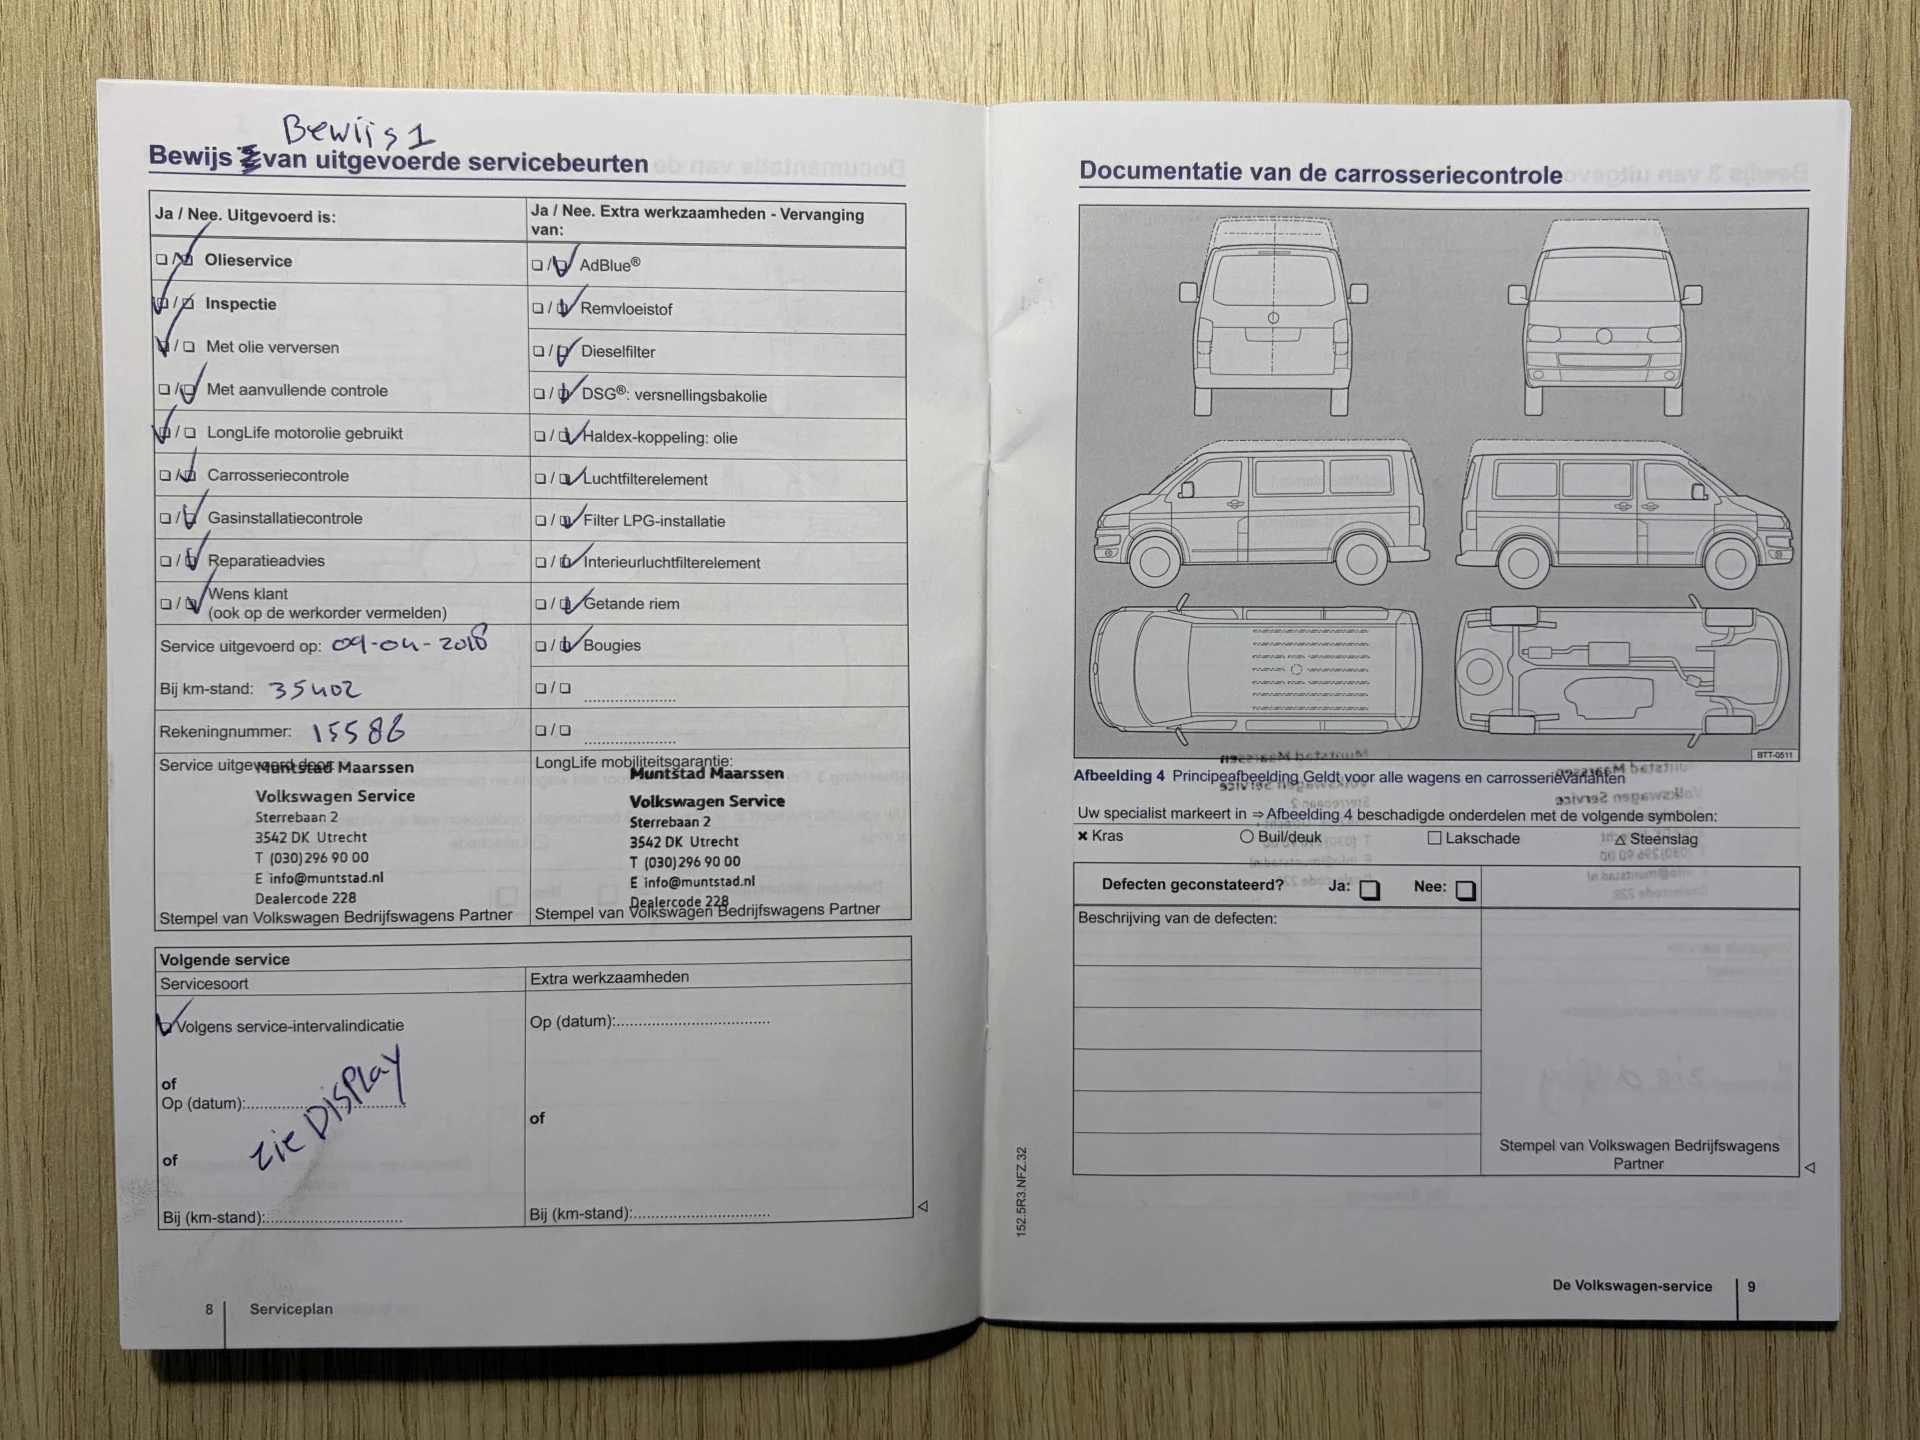 Bewijs 1
Bewijs van uitgevoerde servicebeurten
Ja / Nee. Uitgevoerd is:
Olieservice
Inspectie
Met olie verversen
Met aanvullende controle
LongLife motorolie gebruikt
Carrosseriecontrole
Gasinstallatiecontrole
Reparatieadvies
Wens klant
(ook op de werkorder vermelden)
Service uitgevoerd op: 09-04-2018
Bij km-stand: 35402
Rekeningnummer: 15586
Service uitgevoerd door:
Muntstad Maarssen
Volkswagen Service
Sterrebaan 2
3542 DK Utrecht
T (030) 296 90 00
E info@muntstad.nl
Dealercode 228
Stempel van Volkswagen Bedrijfswagens Partner
Ja / Nee. Extra werkzaamheden - Vervanging
van:
AdBlue®
Remvloeistof
Dieselfilter
DSG®: versnellingsbakolie
Haldex-koppeling: olie
Luchtfilterelement
Filter LPG-installatie
Interieurluchtfilterelement
Getande riem
Bougies
LongLife mobiliteitsgarantie:
Muntstad Maarssen
Volkswagen Service
Sterrebaan 2
3542 DK Utrecht
T (030) 296 90 00
E info@muntstad.nl
Dealercode 228
Stempel van Volkswagen Bedrijfswagens Partner
Volgende service
Servicesoort
Volgens service-intervalindicatie
of
Op (datum):
zie Display
of
Bij (km-stand):
Extra werkzaamheden
Op (datum):
of
Bij (km-stand):
8 Serviceplan
Documentatie van de carrosseriecontrole
BTT-0511
Afbeelding 4 Principeafbeelding Geldt voor alle wagens en carrosserievarianten
Uw specialist markeert in ⇒ Afbeelding 4 beschadigde onderdelen met de volgende symbolen:
Kras Buil/deuk Lakschade Steenslag
Defecten geconstateerd? Ja: Nee:
Beschrijving van de defecten:
Stempel van Volkswagen Bedrijfswagens
Partner
152.5R3.NFZ.32
De Volkswagen-service 9